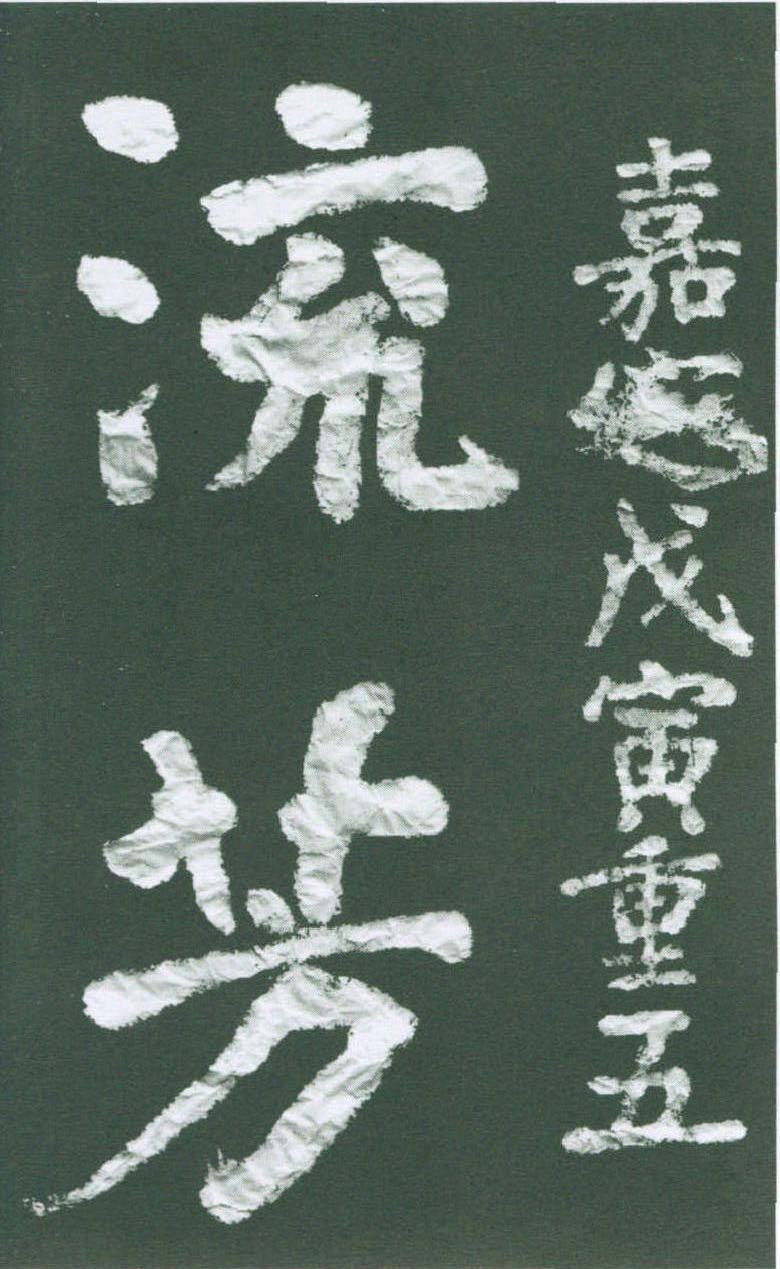 嘉戊寅重五
流芳